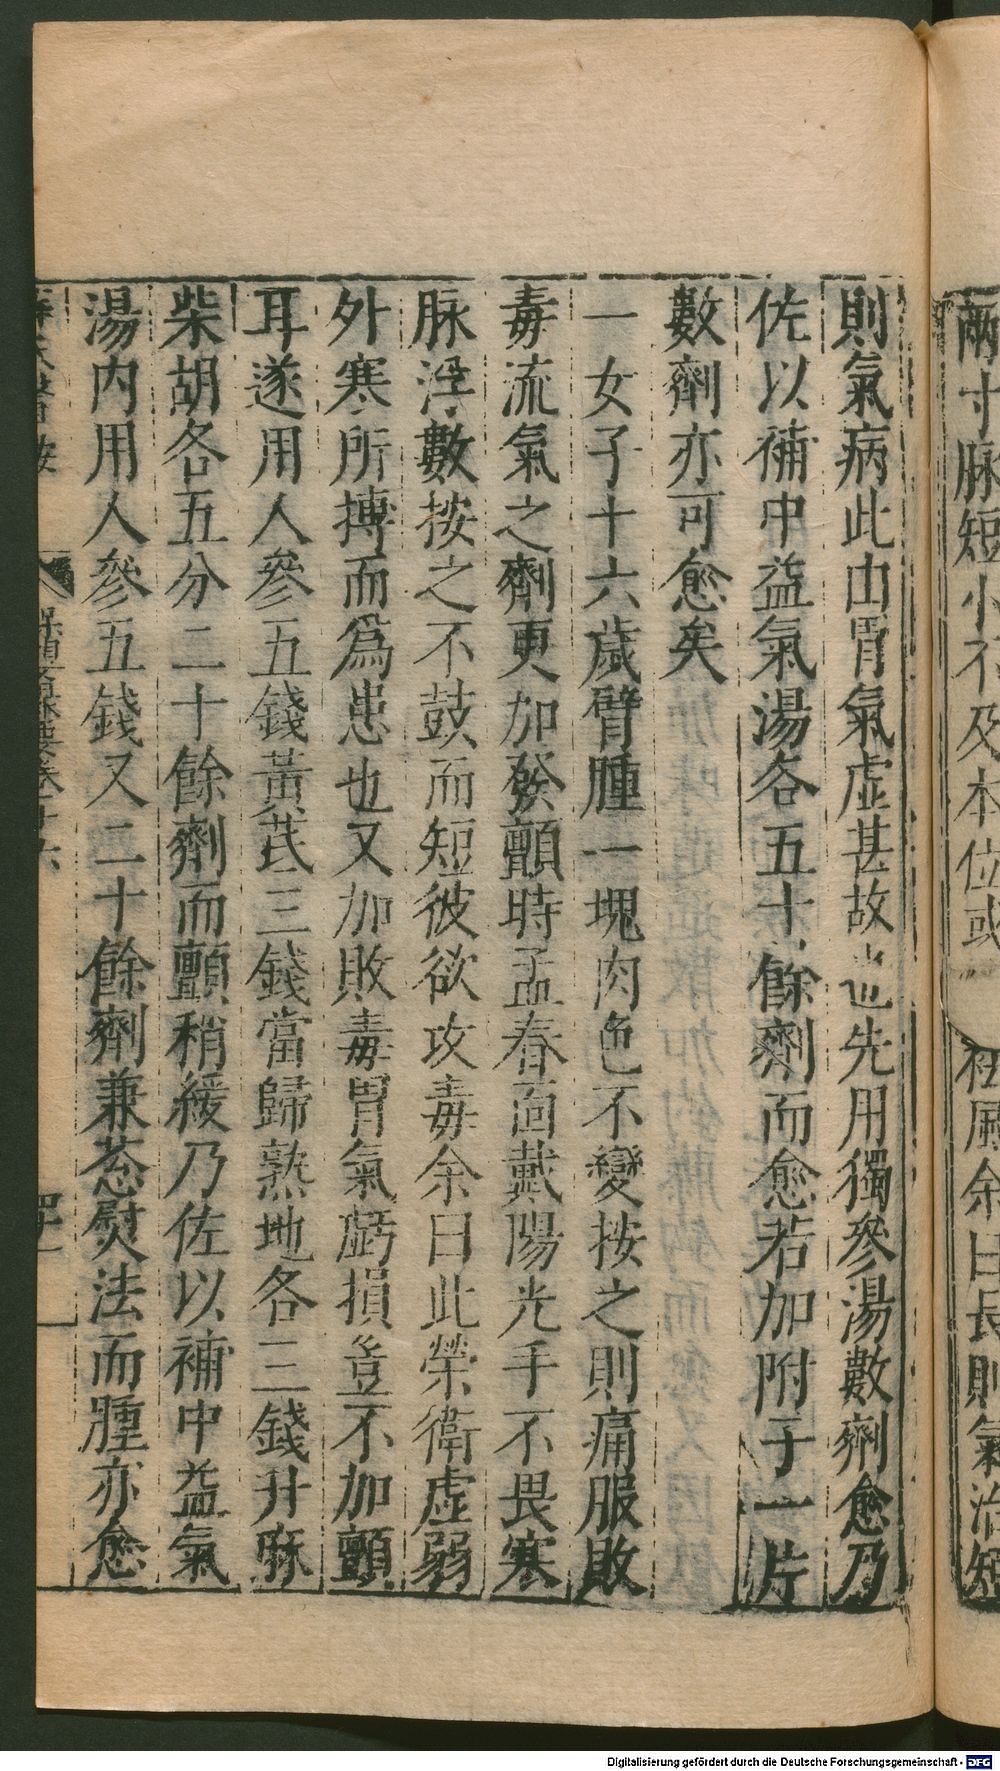 兩寸脉短小不及本位或
祛風余曰長則氣治短
則氣病此由胃氣虛甚故也先用獨參湯數劑愈乃
佐以補中益氣湯各五十餘劑而愈若加附子一片
數劑亦可愈矣
一女子十六歲臂腫一塊肉色不變按之則痛服敗
毒流氣之劑更加發顫時孟春面戴陽光手不畏寒
脉浮數按之不鼓而短彼欲攻毒余曰此榮衛虛弱
外寒所搏而爲患也又加敗毒胃氣虧損豈不加顫
耳遂用人參五錢黃芪三錢當歸熟地各三錢升麻
柴胡各五分二十餘劑而顫稍緩乃佐以補中益氣
湯内用人參五錢又二十餘劑兼葱熨法而腫亦愈
薛氏醫按
保嬰撮要卷十六
Digitalisierung gefördert durch die Deutsche Forschungsgemeinschaft - DFG